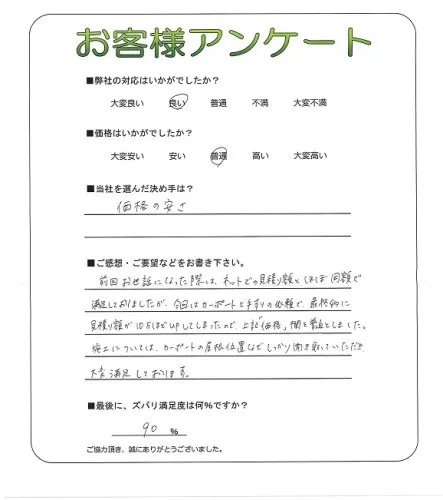 お客様アンケート
■弊社の対応はいかがでしたか?
大変良い 良い 普通 不満 大変不満
■価格はいかがでしたか?
大変安い 安い 普通 高い 大変高い
■当社を選んだ決め手は?
価格の安さ
■ご感想・ご要望などをお書き下さい。
前回お世話になった際は、ネットでの見積り額とほぼ同額で
満足しておりましたが、今回はカーポートと手すりの依頼で、最終的に
見積り額が10万ほどUPしてしまったので、上記「価格」欄を普通としました。
施工については、カーポートの屋根位置などしっかり聞き取っていただき
大変満足しております。
■最後に、ズバリ満足度は何%ですか?
90 %
ご協力頂き、誠にありがとうございました。